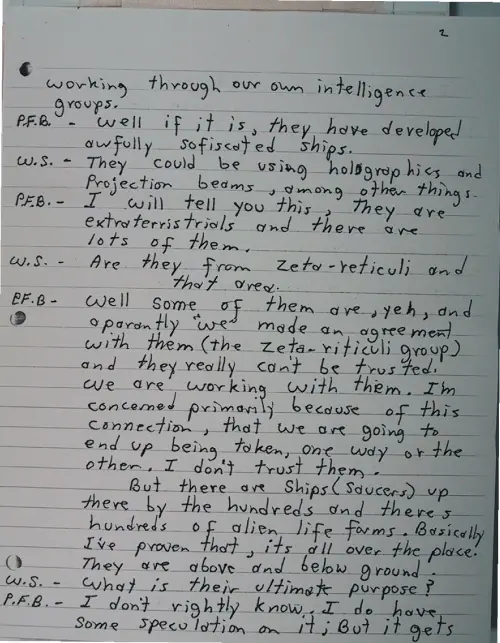 2
working through our own intelligence
groups.
P.F.B. - well if it is, they have developed
awfully sofiscated ships.
W.S. - They could be using holographics and
Projection beams, among other things.
P.F.B. - I will tell you this, They are
extraterristrials and there are
lots of them.
W.S. - Are they from Zeta-reticuli and
that area.
P.F.B - Well some of them are, yeh, and
aparantly "we" made an agreement
with them (the Zeta-riticuli group)
and they really can't be trusted.
We are working with them. I'm
concerned primarily because of this
connection, that we are going to
end up being taken, one way or the
other. I don't trust them.
But there are Ships (Saucers) up
there by the hundreds and there's
hundreds of alien life forms. Basically
I've proven that, its all over the place.
They are above and below ground.
W.S. - What is their ultimate purpose?
P.F.B. - I don't rightly know. I do have
Some speculation on it; But it gets